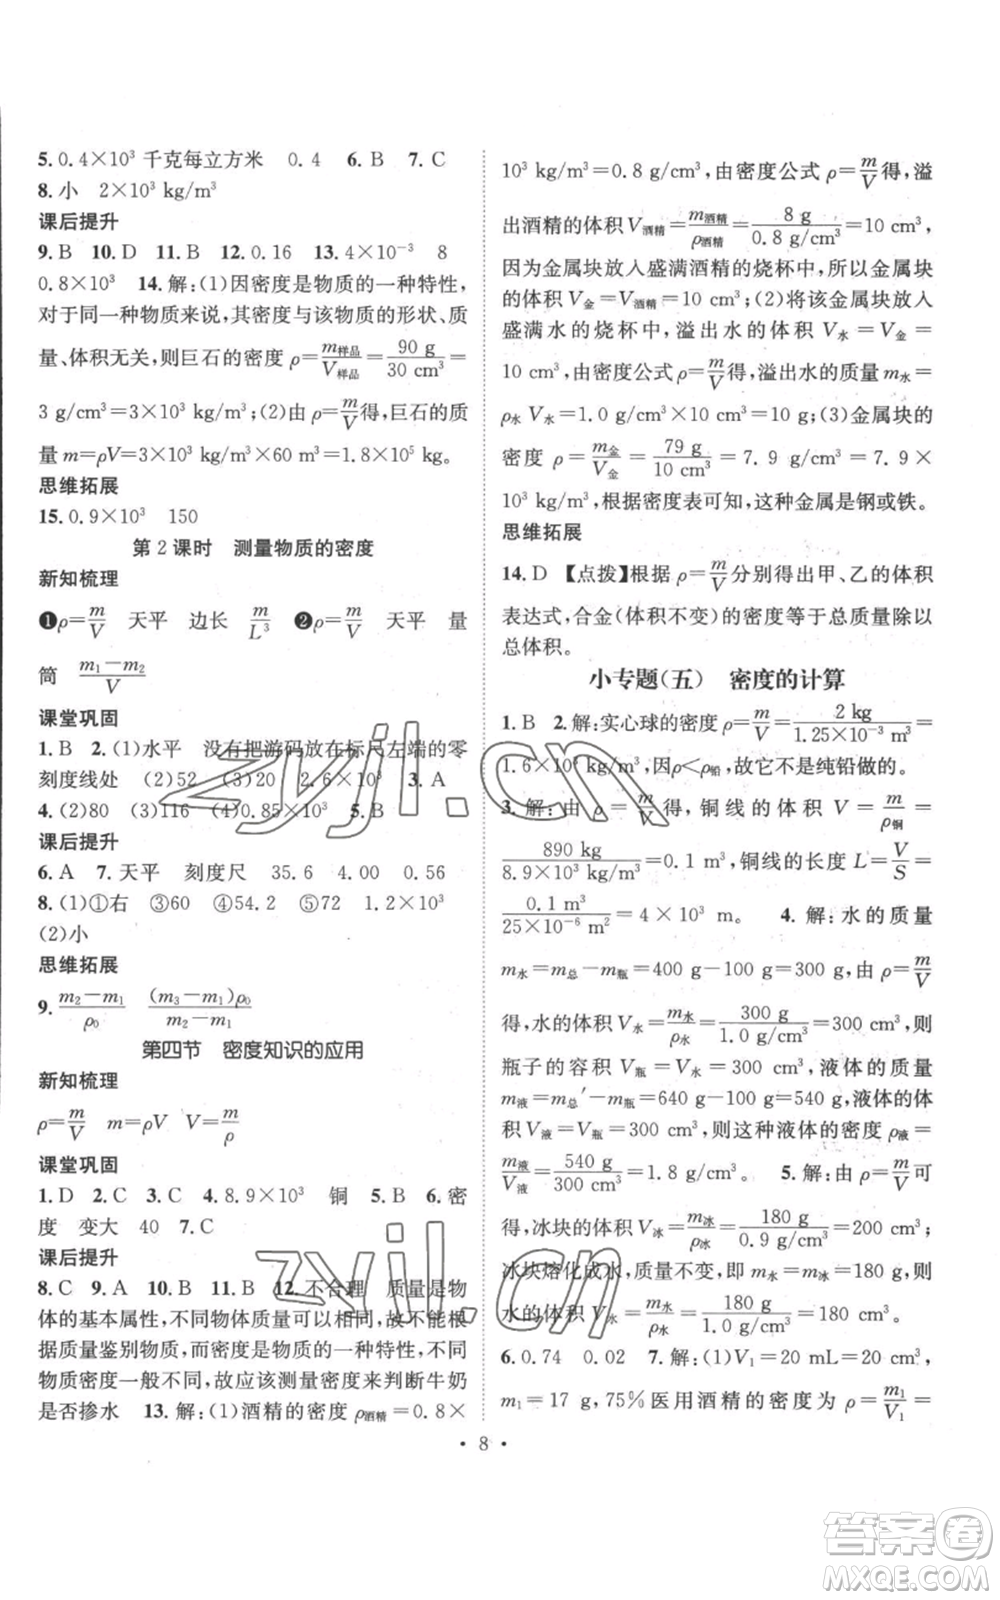 5. 0.4×10³ 千克每立方米 0.4 6. B 7. C
8. 小 2×10³ kg/m³
课后提升
9. B 10. D 11. B 12. 0.16 13. 4×10⁻³ 8
0.8×10³ 14. 解:(1)因密度是物质的一种特性,
对于同一种物质来说,其密度与该物质的形状、质
量、体积无关,则巨石的密度 ρ=m样品/V样品=90 g/30 cm³=
3 g/cm³=3×10³ kg/m³;(2)由 ρ=m/V得,巨石的质
量 m=ρV=3×10³ kg/m³×60 m³=1.8×10⁵ kg。
思维拓展
15. 0.9×10³ 150
第 2 课时 测量物质的密度
新知梳理
❶ρ=m/V 天平 边长 m/L³ ❷ρ=m/V 天平 量
筒 (m₁-m₂)/V
课堂巩固
1. B 2. (1)水平 没有把游码放在标尺左端的零
刻度线处 (2)52 (3)20 2.6×10³ 3. A
4. (2)80 (3)116 (4)0.85×10³ 5. B
课后提升
6. A 7. 天平 刻度尺 35.6 4.00 0.56
8. (1)①右 ③60 ④54.2 ⑤72 1.2×10³
(2)小
思维拓展
9. (m₂-m₁)/ρ₀ (m₃-m₁)ρ₀/(m₂-m₁)
第四节 密度知识的应用
新知梳理
ρ=m/V m=ρV V=m/ρ
课堂巩固
1. D 2. C 3. C 4. 8.9×10³ 铜 5. B 6. 密
度 变大 40 7. C
课后提升
8. C 9. A 10. B 11. B 12. 不合理 质量是物
体的基本属性,不同物体质量可能相同,故不能根
据质量鉴别物质,而密度是物质的一种特性,不同
物质密度一般不同,故应该测量密度来判断牛奶
是否掺水 13. 解:(1)酒精的密度 ρ酒精=0.8×
10³ kg/m³=0.8 g/cm³,由密度公式 ρ=m/V得,溢
出酒精的体积 V酒精=m酒精/ρ酒精=8 g/0.8 g/cm³=10 cm³,
因为金属块放入盛满酒精的烧杯中,所以金属块
的体积 V金=V酒精=10 cm³;(2)将该金属块放入
盛满水的烧杯中,溢出水的体积 V水=V金=
10 cm³,由密度公式 ρ=m/V得,溢出水的质量 m水=
ρ水 V水=1.0 g/cm³×10 cm³=10 g;(3)金属块的
密度 ρ=m金/V金=79 g/10 cm³=7.9 g/cm³=7.9×
10³ kg/m³,根据密度表可知,这种金属是钢或铁。
思维拓展
14. D 【点拨】根据 ρ=m/V分别得出甲、乙的体积
表达式,合金(体积不变)的密度等于总质量除以
总体积。
小专题(五) 密度的计算
1. B 2. 解:实心球的密度 ρ=m/V=2 kg/1.25×10⁻³ m³=
1.6×10³ kg/m³,因ρ<ρ铅,故它不是纯铅做的。
3. 解:由 ρ=m/V得,铜线的体积 V=m/ρ铜=
890 kg/8.9×10³ kg/m³=0.1 m³,铜线的长度 L=V/S=
0.1 m³/25×10⁻⁶ m²=4×10³ m。 4. 解:水的质量
m水=m总-m瓶=400 g-100 g=300 g,由 ρ=m/V
得,水的体积 V水=m水/ρ水=300 g/1.0 g/cm³=300 cm³,则
瓶子的容积 V瓶=V水=300 cm³,液体的质量
m液=m总′-m瓶=640 g-100 g=540 g,液体的体
积 V液=V瓶=300 cm³,则这种液体的密度 ρ液=
m液/V液=540 g/300 cm³=1.8 g/cm³。 5. 解:由 ρ=m/V可
得,冰块的体积 V冰=m冰/ρ冰=180 g/0.9 g/cm³=200 cm³;
冰块熔化成水,质量不变,即 m水=m冰=180 g,则
水的体积 V水=m水/ρ水=180 g/1.0 g/cm³=180 cm³。
6. 0.74 0.02 7. 解:(1)V₁=20 mL=20 cm³,
m₁=17 g,75%医用酒精的密度为 ρ=m₁/V₁=
• 8 •
zyjl.cn
zyjl.cn
答案卷
MXQE.COM